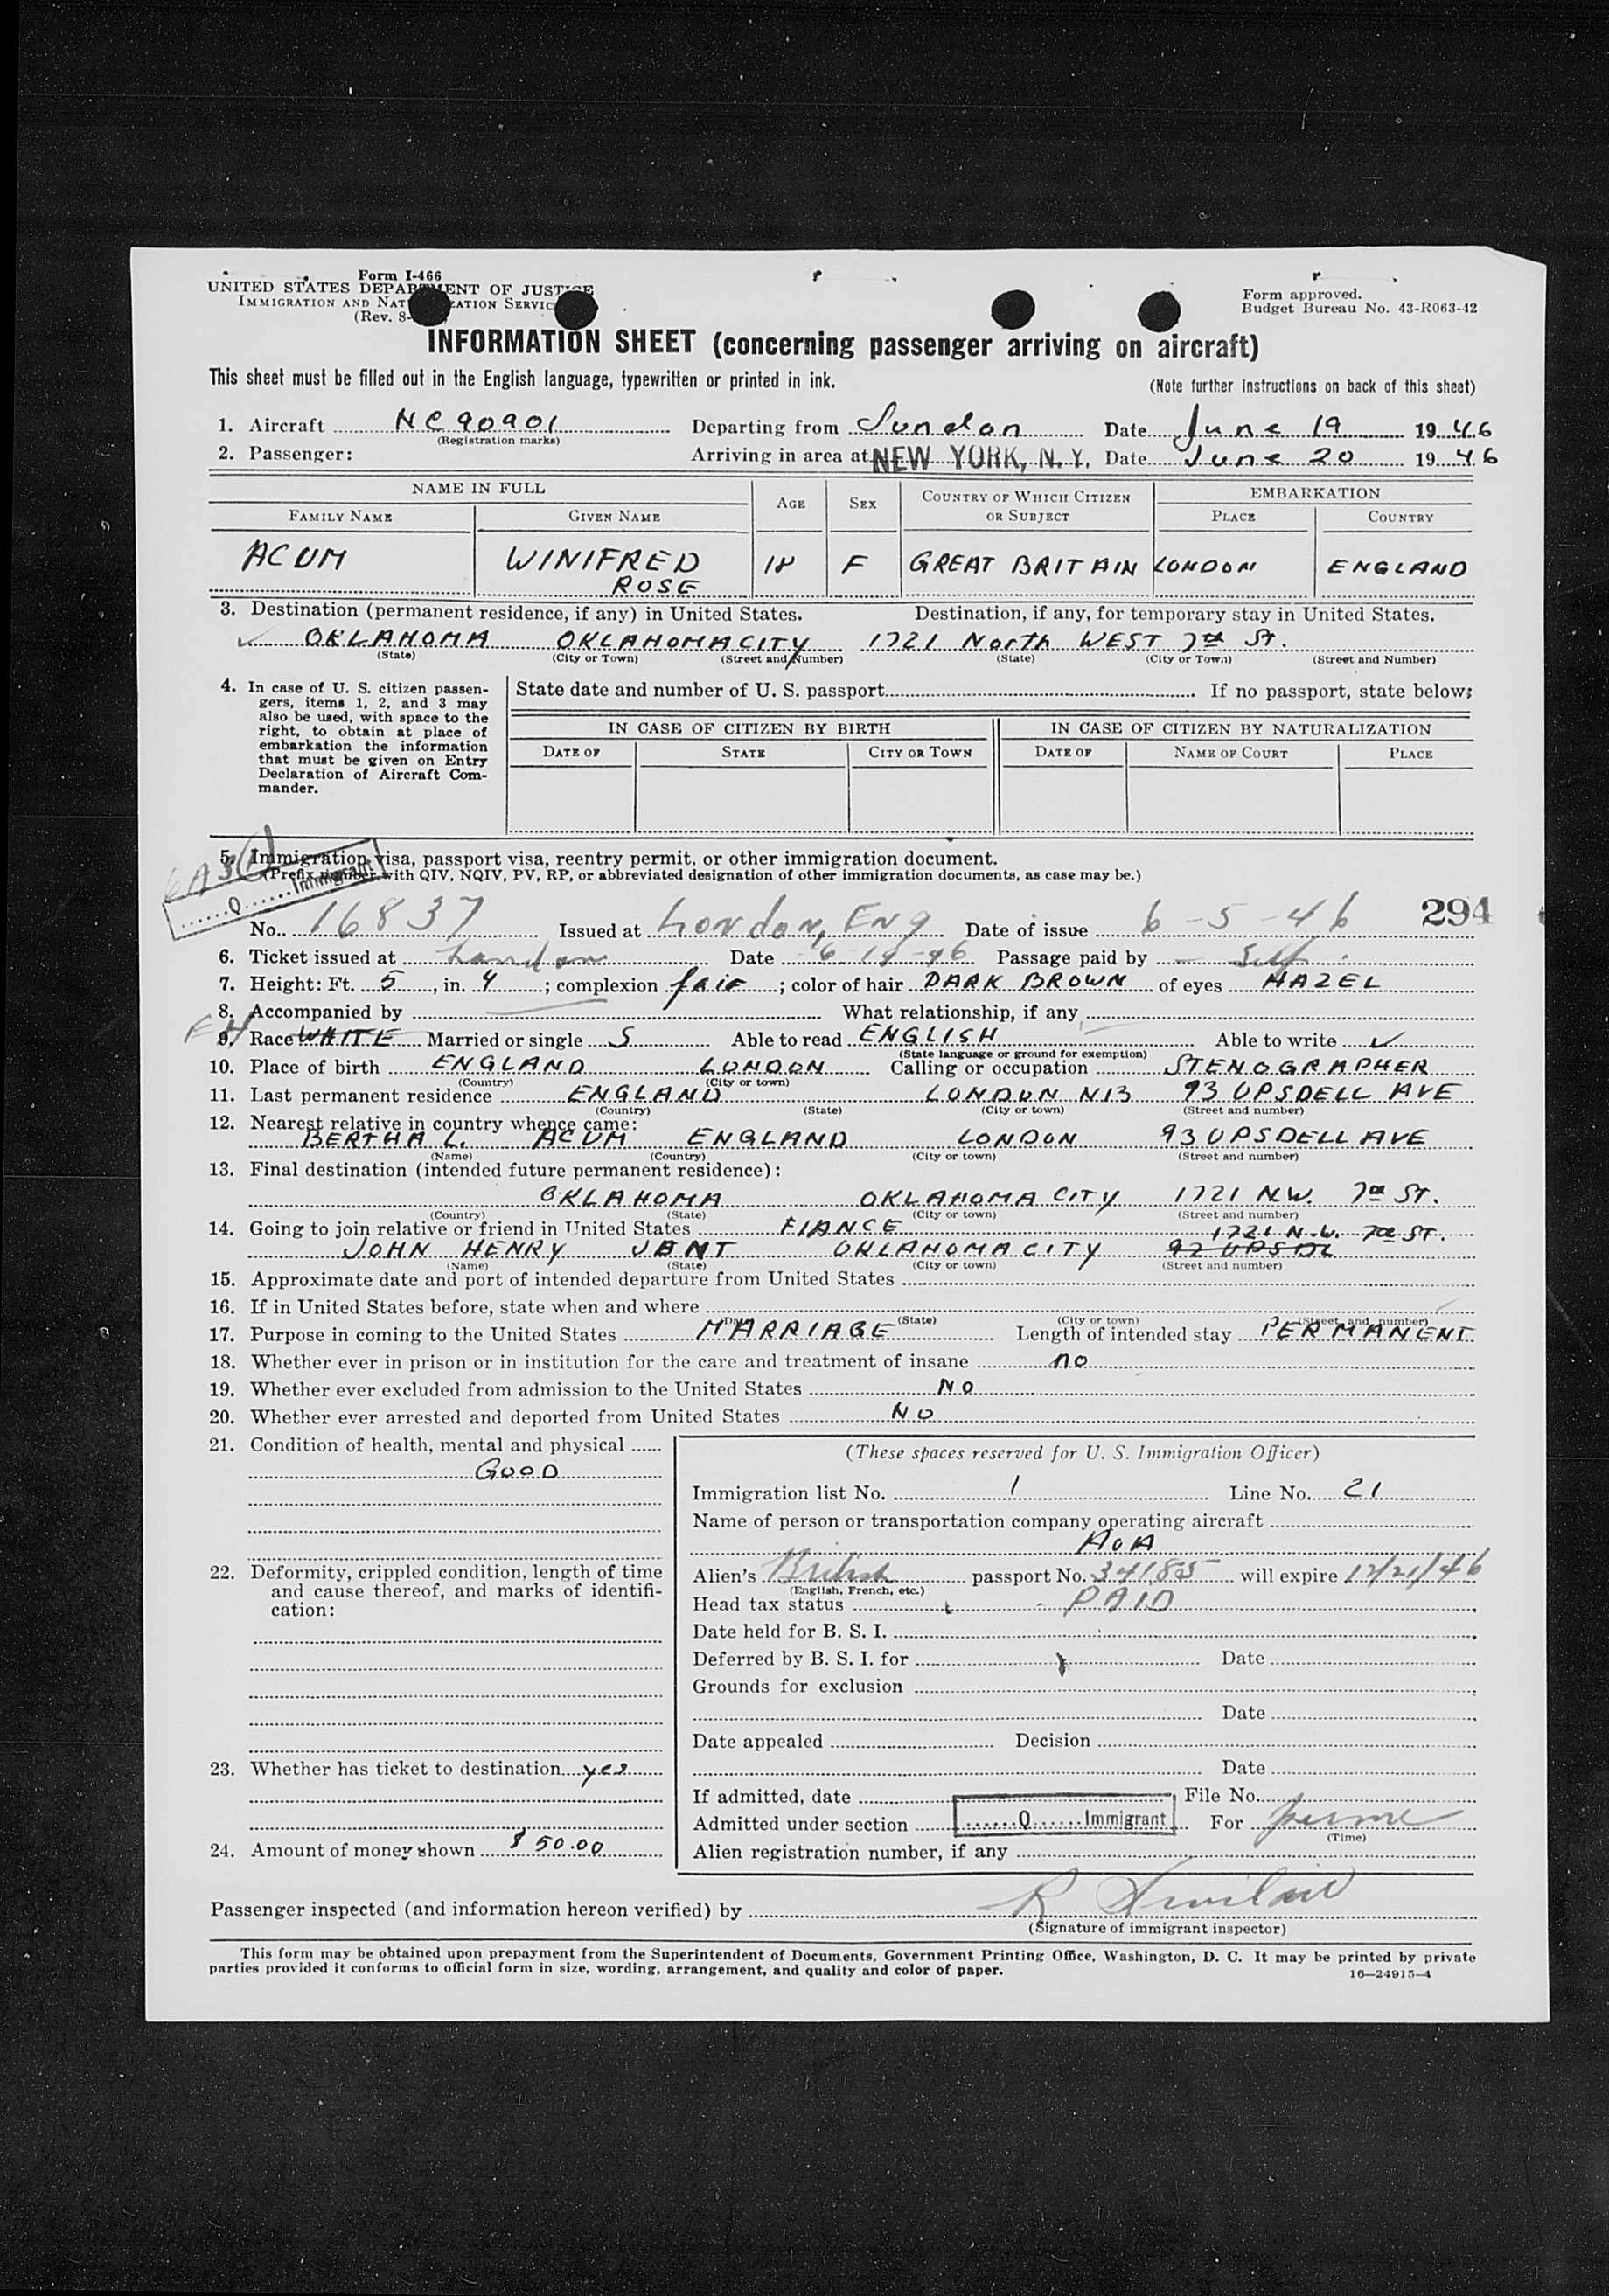 Form I-466
UNITED STATES DEPARTMENT OF JUSTICE
IMMIGRATION AND NATURALIZATION SERVICE
(Rev. 8-
Form approved.
Budget Bureau No. 43-R063-42
INFORMATION SHEET (concerning passenger arriving on aircraft)
This sheet must be filled out in the English language, typewritten or printed in ink.
(Note further instructions on back of this sheet)
1. Aircraft NC90901 Departing from London Date June 19 1946
(Registration marks)
2. Passenger: Arriving in area at NEW YORK, N. Y. Date June 20 1946
NAME IN FULL AGE SEX COUNTRY OF WHICH CITIZEN OR SUBJECT EMBARKATION
FAMILY NAME GIVEN NAME PLACE COUNTRY
ACUM WINIFRED ROSE 18 F GREAT BRITAIN LONDON ENGLAND
3. Destination (permanent residence, if any) in United States. Destination, if any, for temporary stay in United States.
✓ OKLAHOMA OKLAHOMA CITY 1721 North WEST 7th St.
(State) (City or Town) (Street and Number) (State) (City or Town) (Street and Number)
4. In case of U. S. citizen passen-
gers, items 1, 2, and 3 may
also be used, with space to the
right, to obtain at place of
embarkation the information
that must be given on Entry
Declaration of Aircraft Com-
mander.
State date and number of U. S. passport If no passport, state below;
IN CASE OF CITIZEN BY BIRTH IN CASE OF CITIZEN BY NATURALIZATION
DATE OF STATE CITY OR TOWN DATE OF NAME OF COURT PLACE
5. Immigration visa, passport visa, reentry permit, or other immigration document.
(Prefix number with QIV, NQIV, PV, RP, or abbreviated designation of other immigration documents, as case may be.)
......Q......Immigrant
294
No. 16837 Issued at London, Eng Date of issue 6-5-46
6. Ticket issued at London Date 6-19-46 Passage paid by Self
7. Height: Ft. 5, in. 4; complexion fair; color of hair DARK BROWN of eyes HAZEL
8. Accompanied by What relationship, if any
9. Race WHITE Married or single S Able to read ENGLISH Able to write ✓
(State language or ground for exemption)
10. Place of birth ENGLAND LONDON Calling or occupation STENOGRAPHER
(Country) (City or town)
11. Last permanent residence ENGLAND LONDON N13 93 UPSDELL AVE
(Country) (State) (City or town) (Street and number)
12. Nearest relative in country whence came:
BERTHA L. ACUM ENGLAND LONDON 93 UPSDELL AVE
(Name) (Country) (City or town) (Street and number)
13. Final destination (intended future permanent residence):
OKLAHOMA OKLAHOMA CITY 1721 N.W. 7th ST.
(Country) (State) (City or town) (Street and number)
14. Going to join relative or friend in United States FIANCE 1721 N.W. 7th ST.
JOHN HENRY OKLAHOMA CITY
(Name) (State) (City or town) (Street and number)
15. Approximate date and port of intended departure from United States
16. If in United States before, state when and where
(Date) (State) (City or town) (Street and number)
17. Purpose in coming to the United States MARRIAGE Length of intended stay PERMANENT
18. Whether ever in prison or in institution for the care and treatment of insane no
19. Whether ever excluded from admission to the United States NO
20. Whether ever arrested and deported from United States NO
21. Condition of health, mental and physical
GOOD
22. Deformity, crippled condition, length of time
and cause thereof, and marks of identifi-
cation:
23. Whether has ticket to destination yes
24. Amount of money shown $50.00
(These spaces reserved for U. S. Immigration Officer)
Immigration list No. 1 Line No. 21
Name of person or transportation company operating aircraft
AOA
Alien's British passport No. 34185 will expire 12/21/46
(English, French, etc.)
Head tax status PAID
Date held for B. S. I.
Deferred by B. S. I. for Date
Grounds for exclusion
Date
Date appealed Decision
Date
If admitted, date File No.
Admitted under section ......Q......Immigrant For perm
(Time)
Alien registration number, if any
Passenger inspected (and information hereon verified) by R
(Signature of immigrant inspector)
This form may be obtained upon prepayment from the Superintendent of Documents, Government Printing Office, Washington, D. C. It may be printed by private
parties provided it conforms to official form in size, wording, arrangement, and quality and color of paper.
16—24915-4